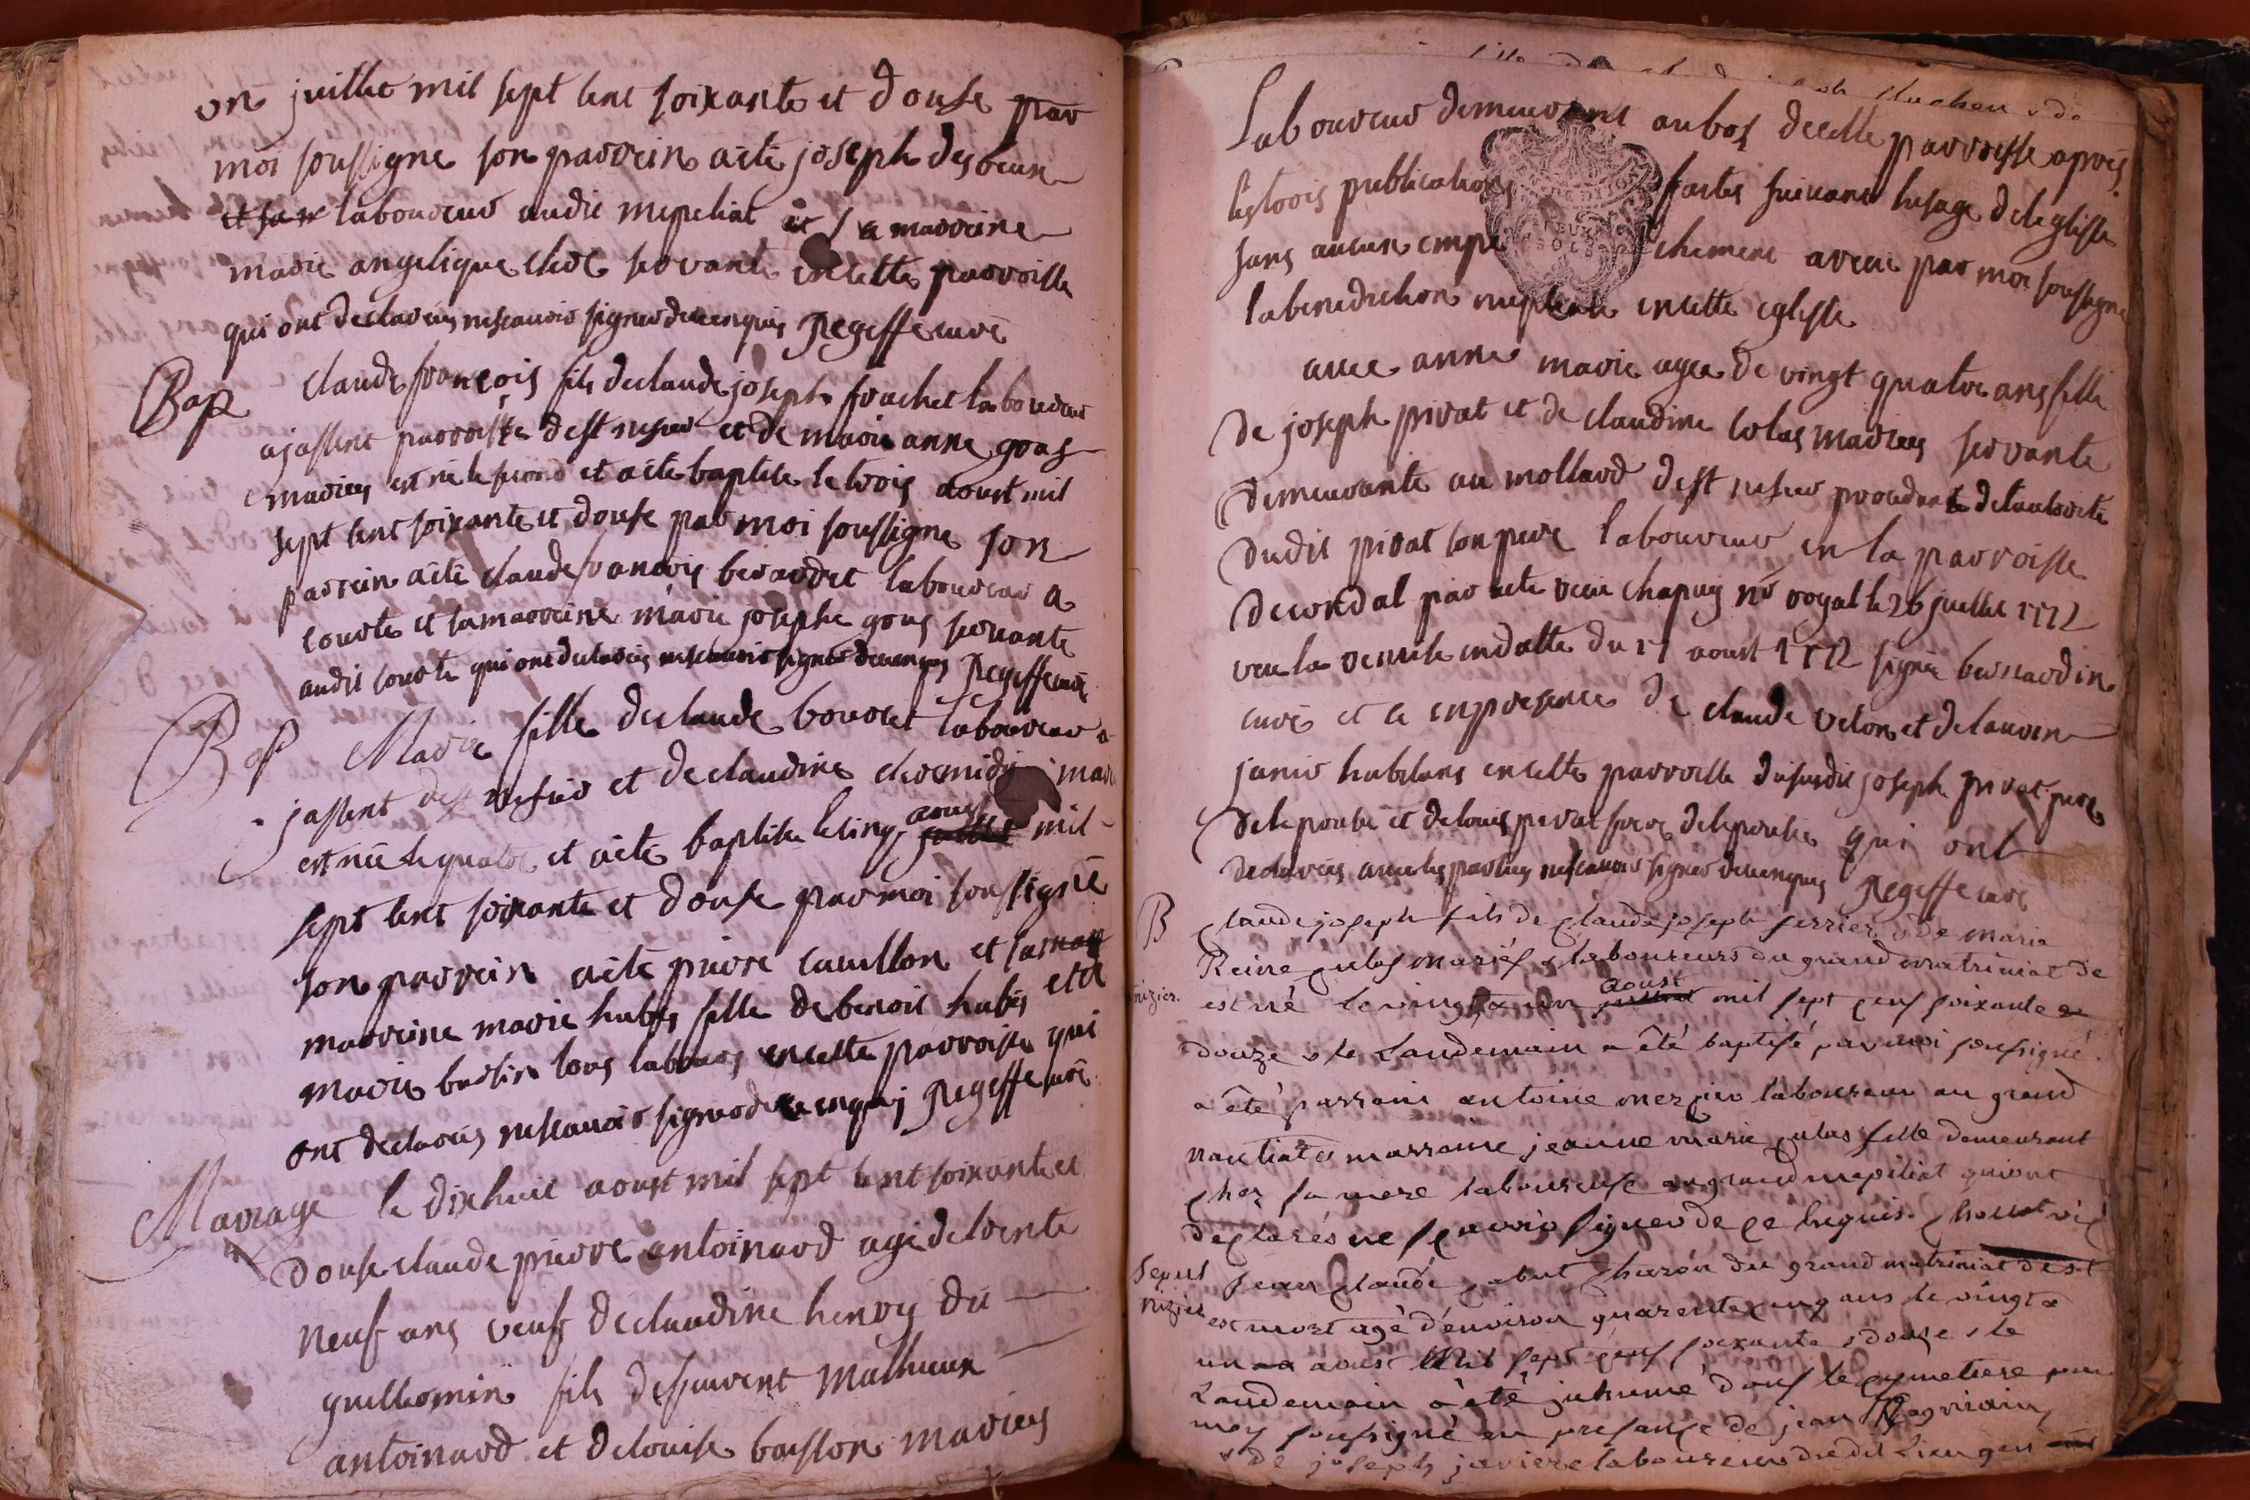 un juillet mil sept cent soixante et douse par
moi soussigne son parrein aété joseph desbeux
laboureur audit mepeliat et sa marreine
marie angelique clerc servante en cette parroisse
qui ont declarées nescavoir signer de cenquis regeffe curé
Bap claude françois fils de claude joseph frachet laboureur
a jassent parroisse dest nesier et de marie anne gous
mariees est né le second et aété baptise le trois aoust mil
sept cent soixante et douse par moi soussigne son
parrein aété claude francois berardet laboureur a
courte et sa marreine marie josephe gous servante
audit courte qui ont declarées nescavoir signer de cenquis regeffe curé
Bap Marie fille de claude bouvret laboureur a
jassent dest nesier et de claudine
est née le quatre et aété baptisée le cinq aoust mil
sept cent soixante et douse par moi soussigné
son parrein aété pierre cavillon et sa
marreine marie hubes fille de benoit hubes et de
marie burtin tous labours en cette parroisse qui
ont declarées nescavoir signer de cenquis regeffe curé
Mariage le dixhuit aoust mil sept cent soixante et
douse claude pierre antoinard agé de trente
neuf ans veuf de claudine henry du
guillhomin fils de laurent mathieu
antoinard et de louise bousson mariees
Laboureur demeurant au bos de cette parroisse après
les trois publications faites suivant lusage de leglisse
sans aucun empechement a receu par moi soussigne
la benediction nuptiale en cette eglisse
avec anne marie agée de vingt quatre ans fille
de joseph privat et de claudine colas mariees servante
demeurante au mollard dest nesier procedant de lautorité
dudit privat son pere laboureur en la parroisse
de condal par acte receu chapuis nre royal le 26 juillet 1772
veu la remise en datte du 17 aoust 1772 signée bernardin
curé et ce en presence de claude velon et de laurent
janin habitans en cette parroisse dususdit joseph privat pere
de lepouse et de louis privat frere de lepouse qui ont
declarées avec les parties nescavoir signer de cenquis regeffe curé
B claude joseph fils de claude joseph ferrier & de marie
Reine colas mariés & laboureurs du grand matriniat de
nizier. est né le vingt & un aoust mil sept cens soixante et
douze & le Landemain a été baptisé par moi sousigné.
a été parrain antoine mercier laboureur au grand
marraine jeanne marie colas fille demeurant
chez sa mere laboureuse au grand mepiliat qui ont
declarés ne scavoir signer de ce requis. chollot vic
Sepul jean claude charon du grand matriniat de st
nizier est mort agé d'environ quarente cinq ans le vingt &
un aoust mil sept cens soixante & douze & le
Landemain a été inhumé dans le cymetiere par
moy sousigné en presance de jean
& de joseph janiere laboureurs dudit Lieu qui